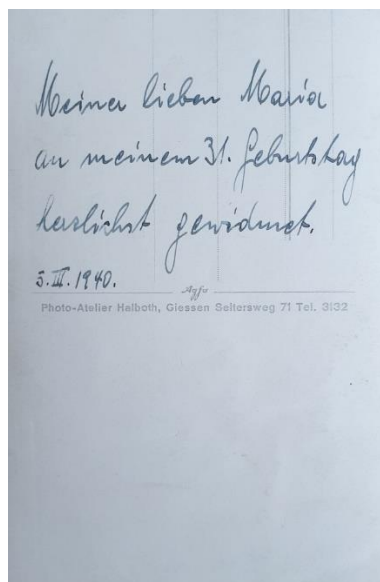 Meiner lieben Maria
an meinem 31. Geburtstag
herzlichst gewidmet.
5. III. 1940.
Agfa
Photo-Atelier Halboth, Giessen Seltersweg 71 Tel. 3132